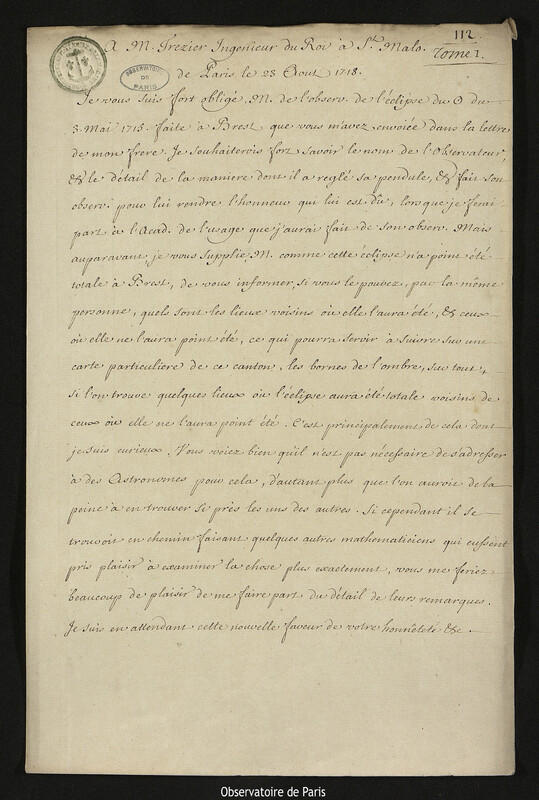 112
Tome 1.
A M. Frezier Ingenieur du Roi à St. Malo.
OBSERVATOIRE DE PARIS
de Paris le 28 Aout 1718.
Je vous suis fort obligé, M. de l'observ. de l'éclipse du ☉ du
3. Mai 1715. faite à Brest que vous m'avez envoiée dans la lettre
de mon frere. Je souhaiterois fort savoir le nom de l'Observateur,
& le détail de la maniere dont il a reglé sa pendule, & fait son
observ. pour lui rendre l'honneur qui lui est dû, lorsque je ferai
part à l'Acad. de l'usage que j'aurai fait de son observ. Mais
auparavant je vous supplie, M. comme cette éclipse n'a point été
totale à Brest, de vous informer, si vous le pouvez, par la même
personne, quels sont les lieux voisins où elle l'aura été, & ceux
où elle ne l'aura point été, ce qui pourra servir à suivre sur une
carte particuliere de ce canton, les bornes de l'ombre, sur tout,
si l'on trouve quelques lieux où l'éclipse aura été totale voisins de
ceux où elle ne l'aura point été. C'est principalement de cela dont
je suis curieux. Vous voiez bien qu'il n'est pas nécessaire de s'adresser
à des Astronomes pour cela, d'autant plus que l'on auroit de la
peine à en trouver si près les uns des autres. Si cependant il se
trouvoit en chemin faisant quelques autres mathematiciens qui eussent
pris plaisir à examiner la chose plus exactement, vous me feriez
beaucoup de plaisir de me faire part du détail de leurs remarques.
Je suis en attendant cette nouvelle faveur de votre honnêteté &c.
Observatoire de Paris